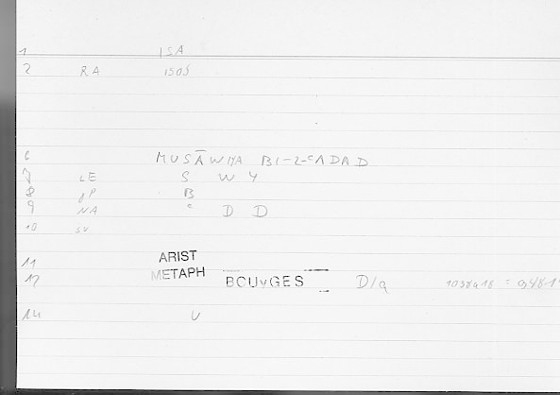 1 ISA
2 RA ISOS
6 MUSĀWIYA BI-L-ʿADAD
7 LE S W Y
8 gP B
9 NA ʿ D D
10 SV
11 ARIST
12 METAPH BOUYGES D/a
14 U